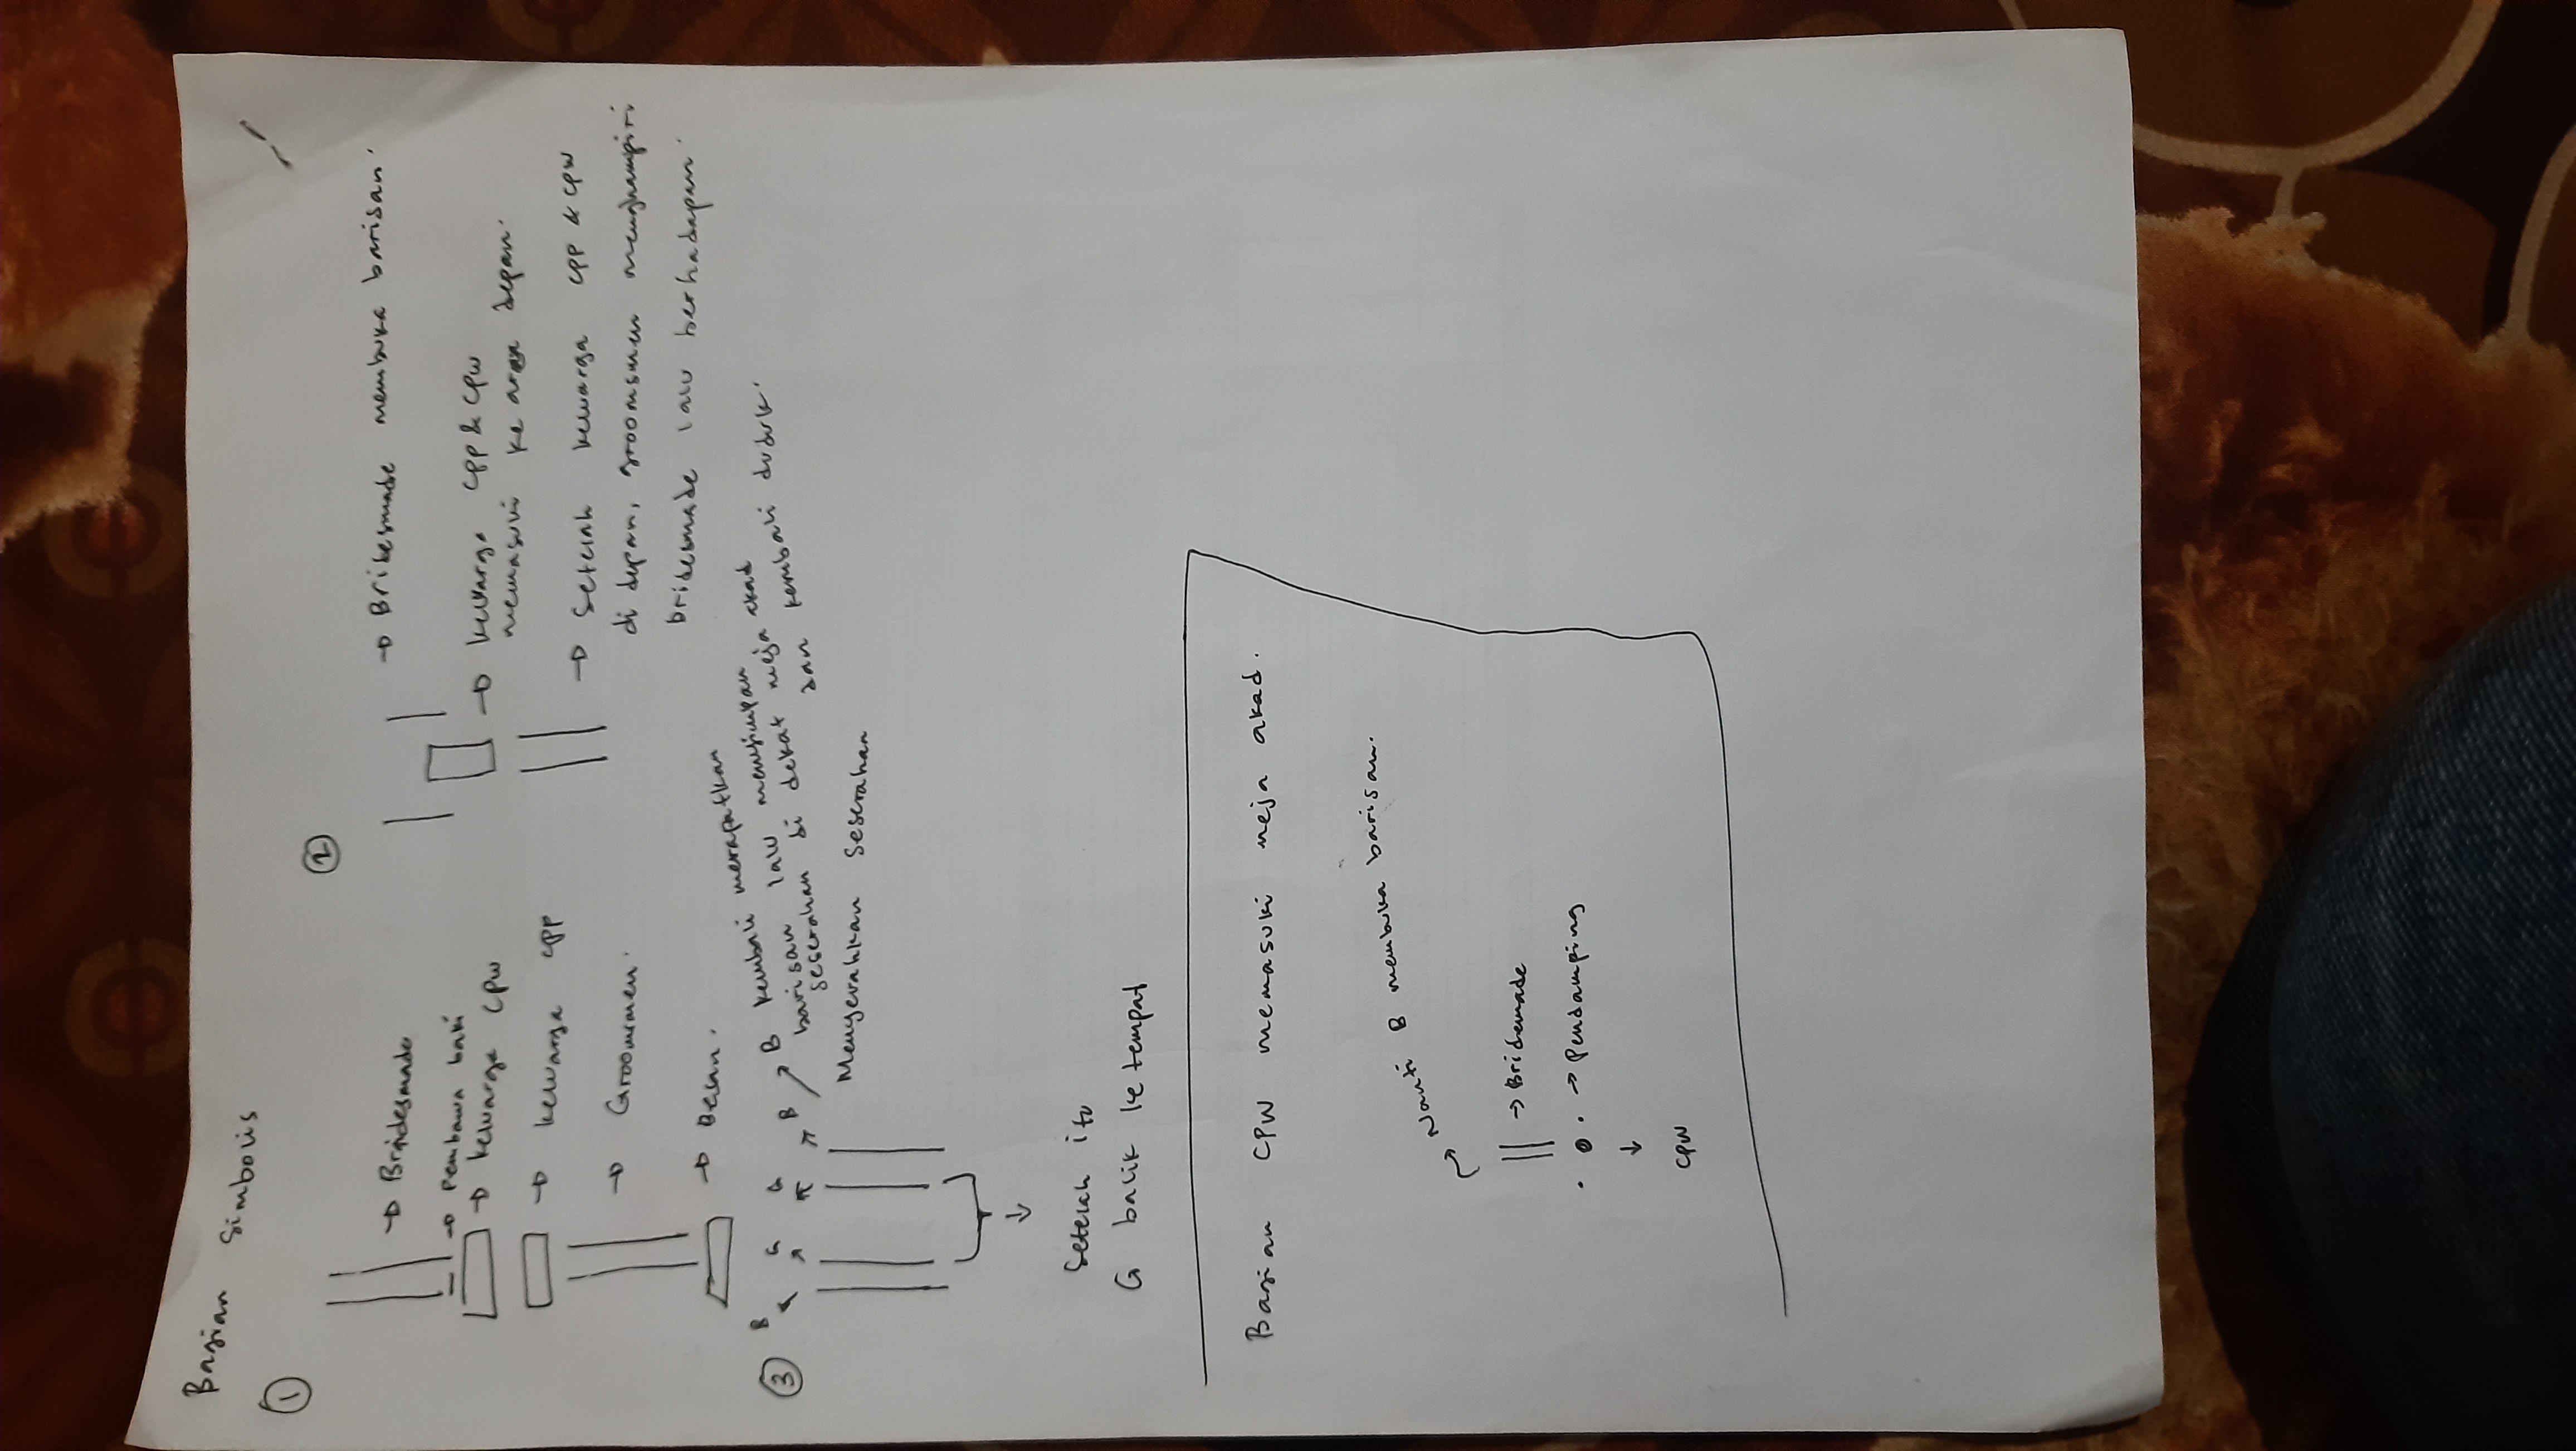 Bagian Simbolis
①
→ Bridesmade
→ Pembawa baki
→ keluarga CPW
→ keluarga CPP
→ Groomsmen.
→ Besan.
②
→ Bridesmade membuka barisan.
→ keluarga CPP & CPW
memasuki ke area depan.
→ Setelah keluarga CPP & CPW
di depan, groomsmen menghampiri
bridesmade lalu berhadapan.
③
B G G B
B kembali merapatkan
barisan lalu menyimpan
seserahan di dekat meja akad
dan kembali duduk.
Menyerahkan Seserahan
Setelah itu
G balik ke tempat
Bagian CPW memasuki meja akad.
Nanti B membuka barisan.
→ Bridemade
→ Pendamping
CPW